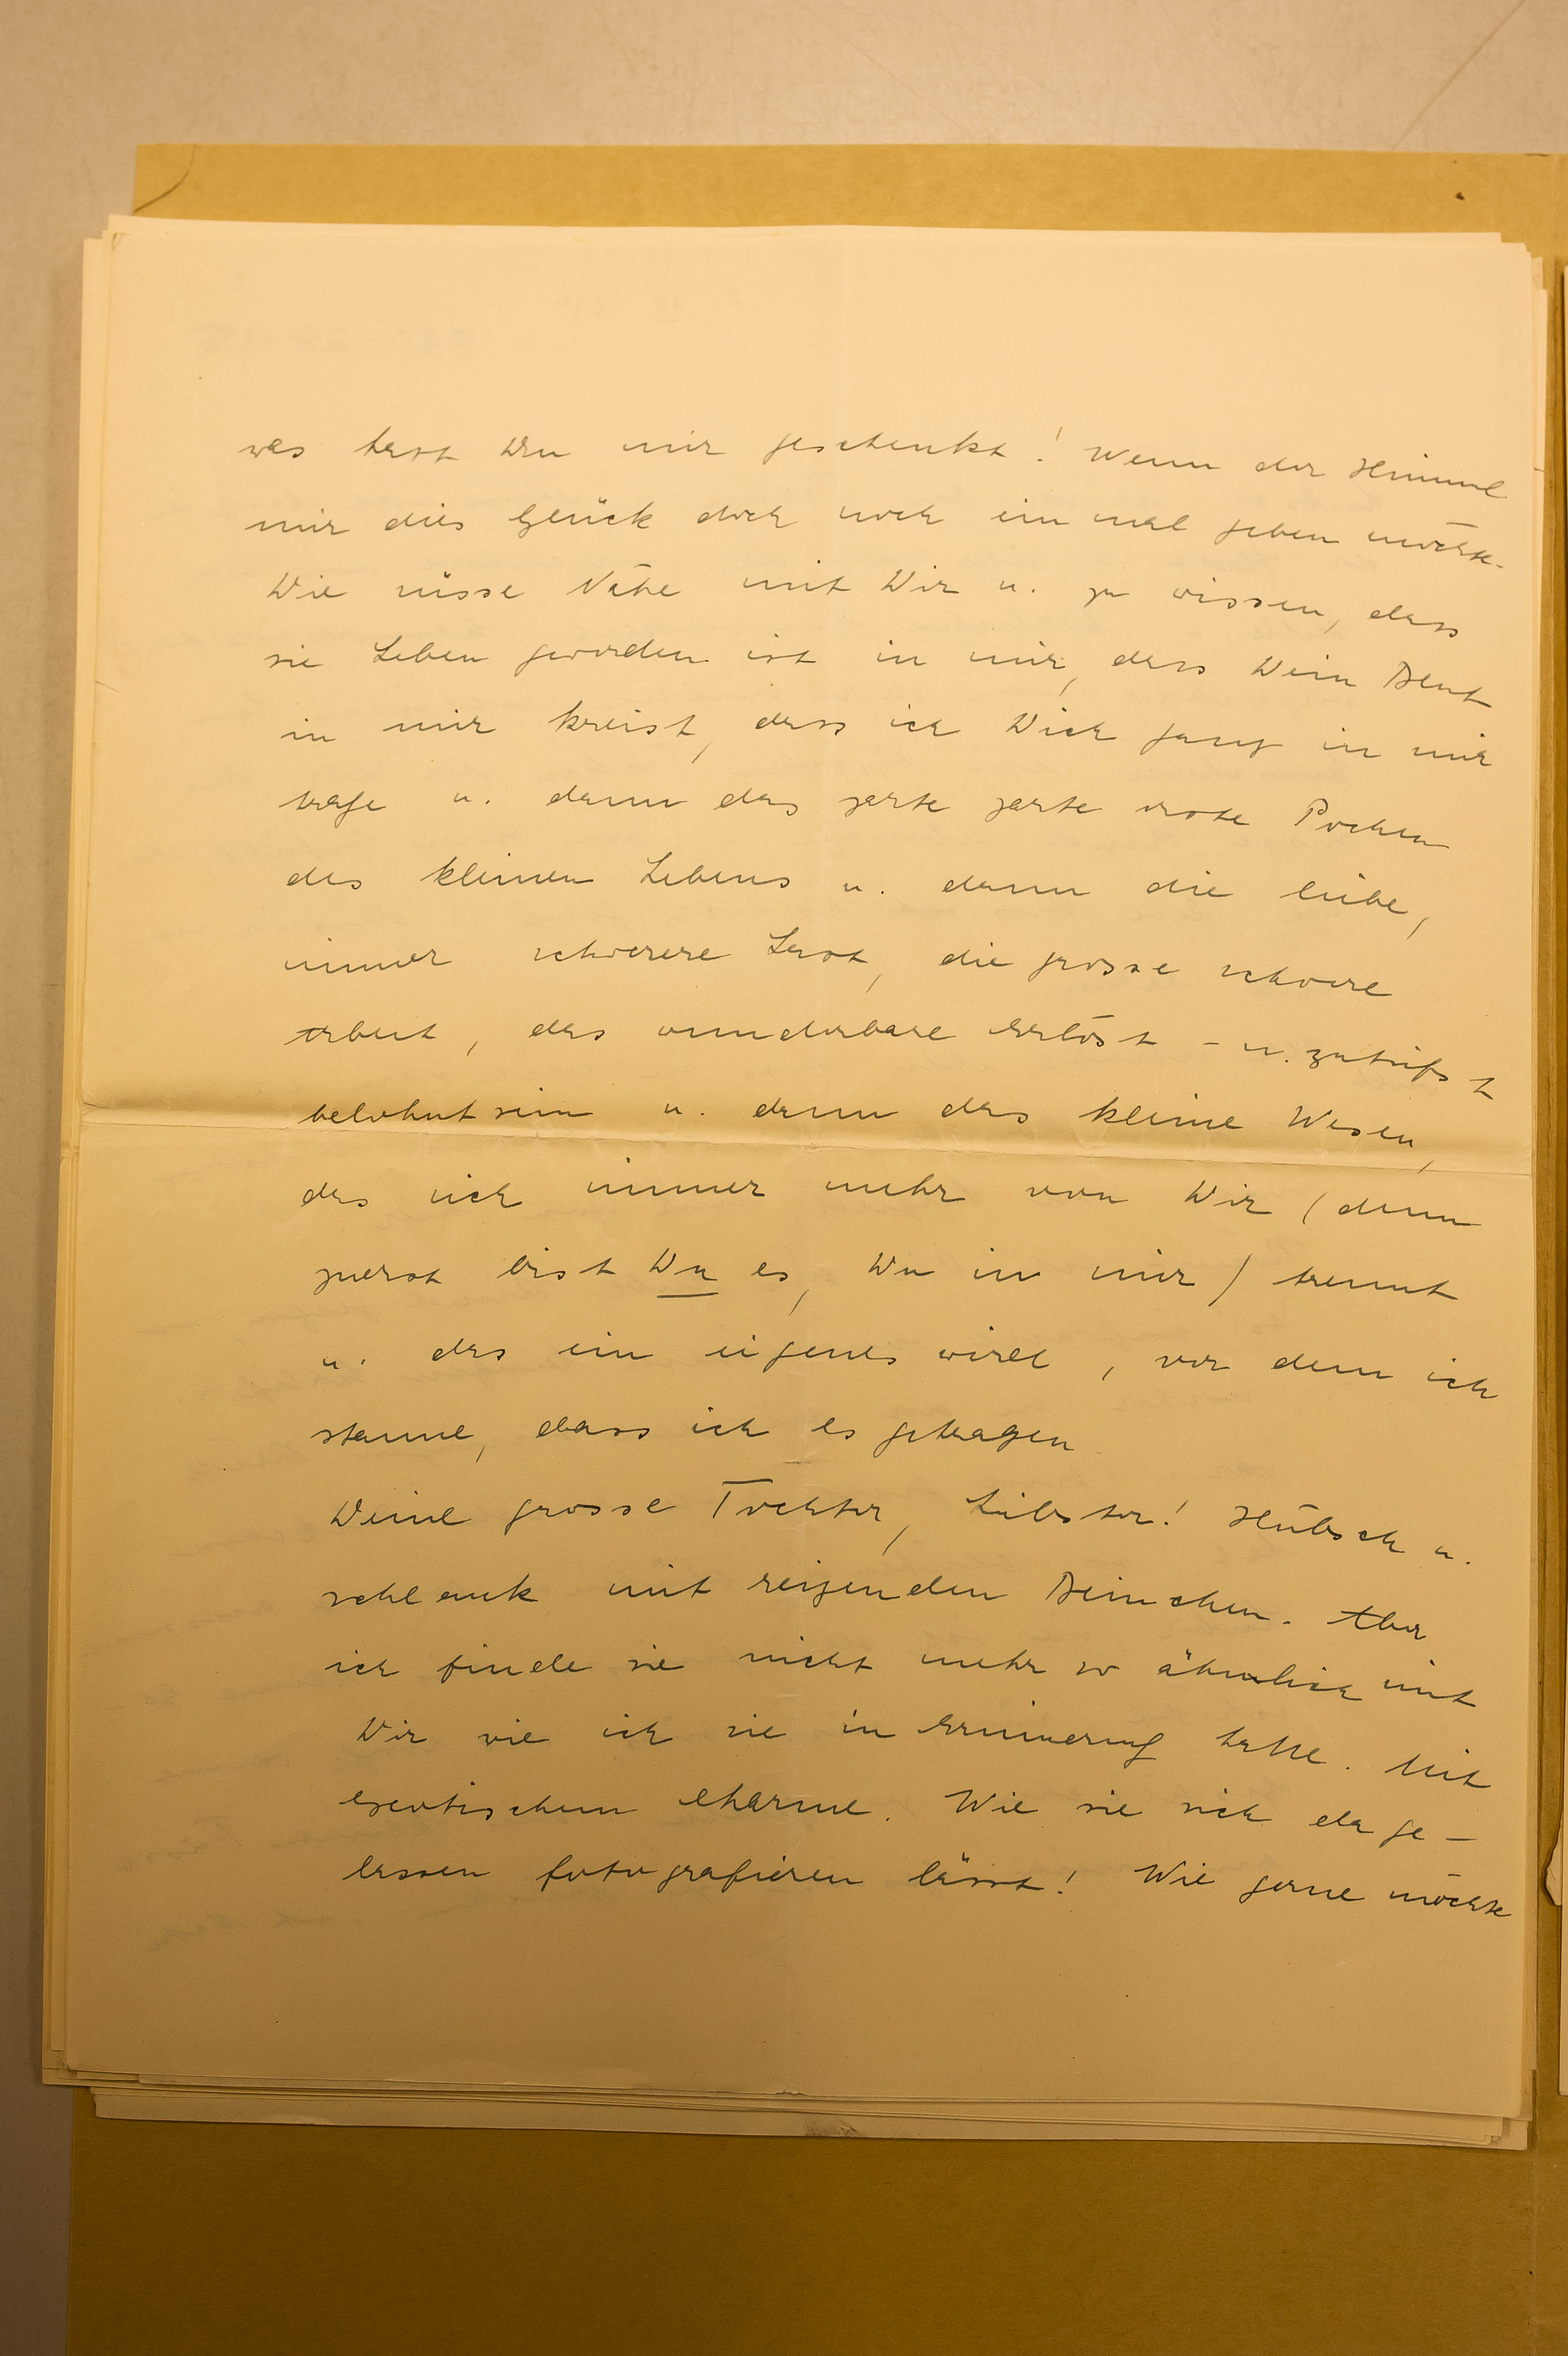 was hast Du mir geschenkt! Wenn der Himmel
mir dies Glück doch noch ein mal geben möchte.
Die süsse Nähe mit Dir u. zu wissen, dass
sie Leben geworden ist in mir, dass Dein Blut
in mir kreist, dass ich Dich ganz in mir
trage u. dann das zarte zarte erste Pochen
des kleinen Lebens u. dann die liebe,
immer schwerere Last, die grosse schwere
Arbeit, das wunderbare Erlöst - u. zutiefst
belohnt sein u. dann das kleine Wesen,
das sich immer mehr von Dir (denn
zuerst bist Du es, Du in mir) trennt
u. das ein eigenes wird, vor dem ich
staune, dass ich es getragen
Deine grosse Tochter, Liebster! Hübsch u.
schlank mit reizenden Beinchen. Aber
ich finde sie nicht mehr so ähnlich mit
Dir wie ich sie in Erinnerung hatte. Mit
exotischem Charme. Wie sie sich da ge-
lassen fotografieren lässt! Wie gerne möchte